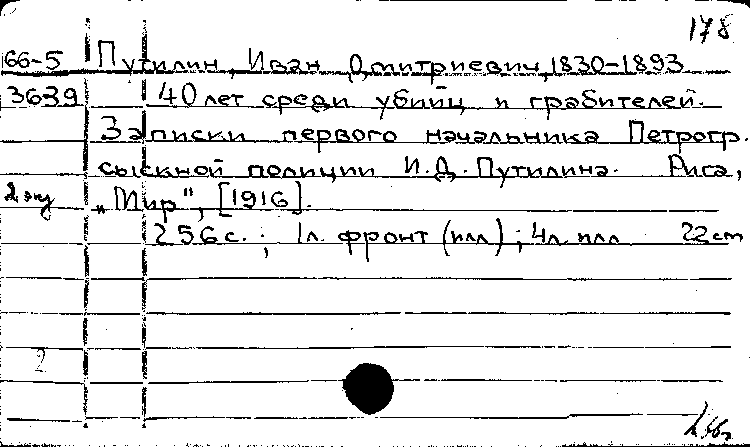 178
66-5 Путилин, Иван Дмитриевич, 1830-1893
3639 40 лет среди убийц и грабителей.
Записки первого начальника Петрогр.
сыскной полиции И.Д. Путилина. Рига,
2 экз „Мир", [1916].
256 с.; 1 л. фронт (илл); 4 л. илл 22 cm
2